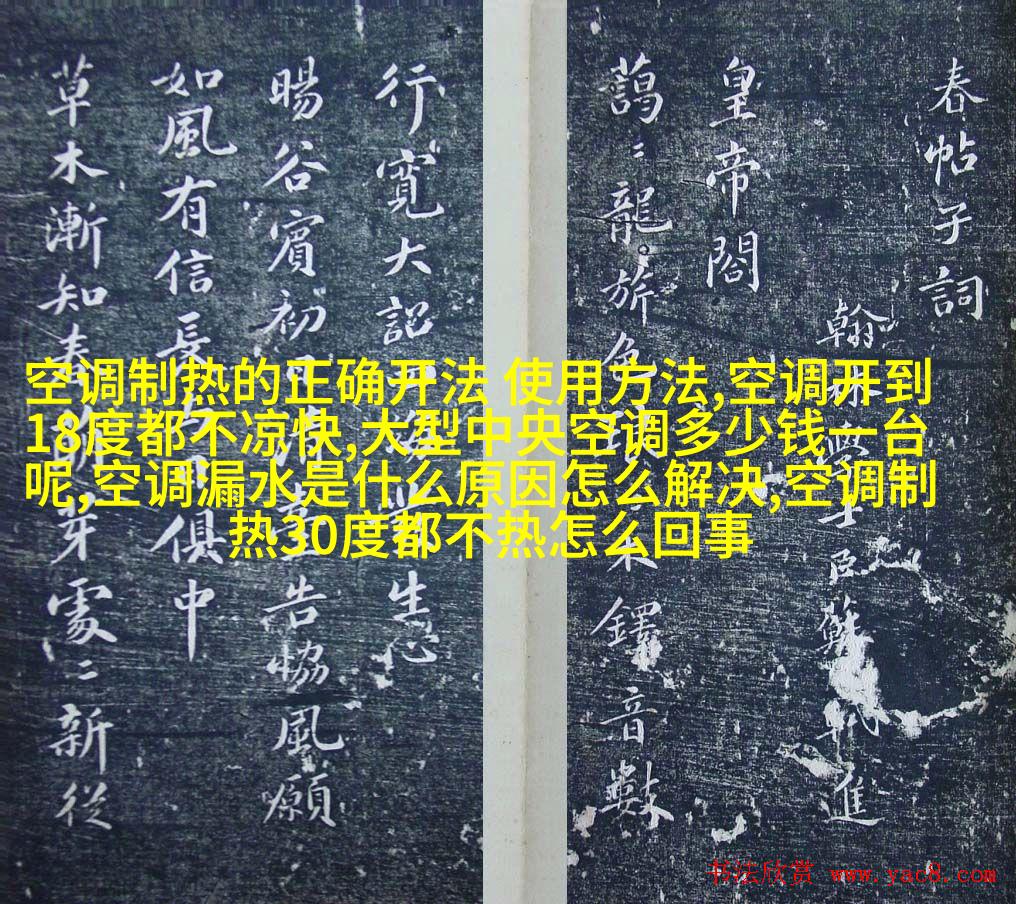 春帖子詞
翰林學士臣蘇軾進
皇帝閤
藹〻龍旂色 木鐸音數
行寬大詔 生心
暘谷賓初日清臺告協風願
如風有信長與日俱中
草木漸知春萌芽處〻新從
空调制热的正确开法 使用方法,空调开到
18度都不凉快,大型中央空调多少钱一台
呢,空调漏水是什么原因怎么解决,空调制
热30度都不热怎么回事
书法欣赏 www.yac8.com